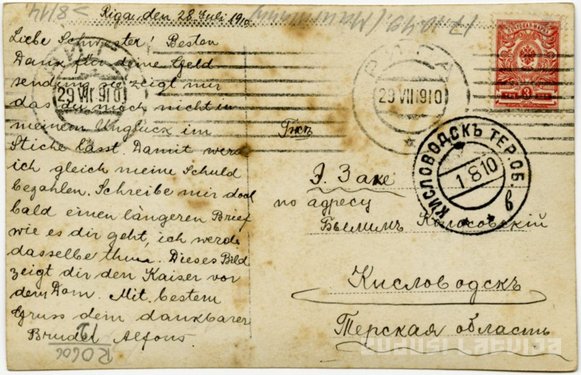 Riga, den 28. Juli 1910.
Liebe Schwester! Besten
Dank für deine Geld
sendung. Es zeigt mir
das du mich nicht in
meinem Unglück im
Stiche lässt. Damit werde
ich gleich meine Schuld
bezahlen. Schreibe mir doch
bald einen längeren Brief
wie es dir geht, ich werde
dasselbe thun. Dieses Bild
zeigt dir den Kaiser vor
dem Dom. Mit bestem
Gruss dem dankbarer
Bruder Alfons.
29 VII 1910
РИГА
29 VII 1910
3
КИСЛОВОДСКЪ ТЕР. ОБ.
1 8 10
в
Э. Заке
по адресу
Кисловодскъ
Терская область